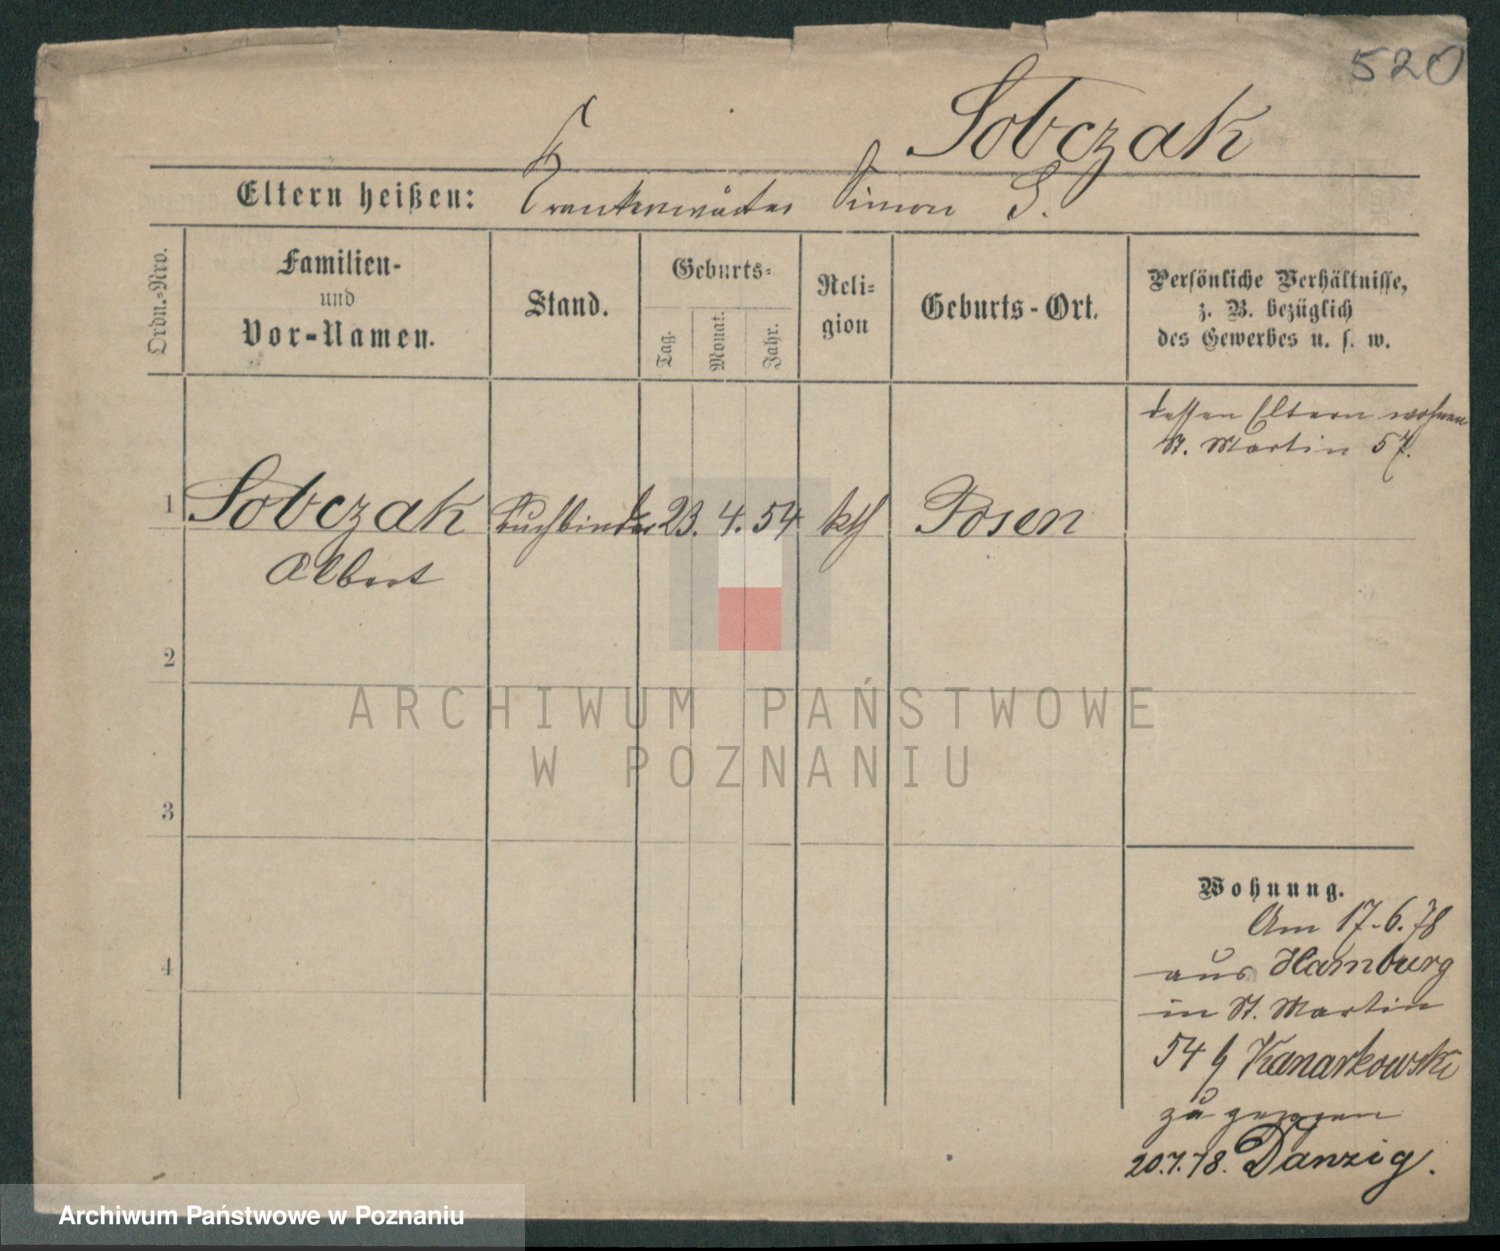 520
Sobczak
Eltern heißen: Krankenwärter Simon S.
Ordn.-Nro.
Familien-
und
Vor-Namen.
Stand.
Geburts-
Tag.
Monat.
Jahr.
Reli-
gion
Geburts-Ort.
Persönliche Verhältnisse,
z. B. bezüglich
des Gewerbes u. s. w.
dessen Eltern wohnen
St. Martin 57.
1 Sobczak Buchbinder 23. 4. 54 kth Posen
Albert
2
3
4
Wohnung.
Am 17.6.78
aus Hamburg
in St. Martin
54 b Kanarkowski
zugezogen
20.7.78. Danzig.
ARCHIWUM PAŃSTWOWE
W POZNANIU
Archiwum Państwowe w Poznaniu